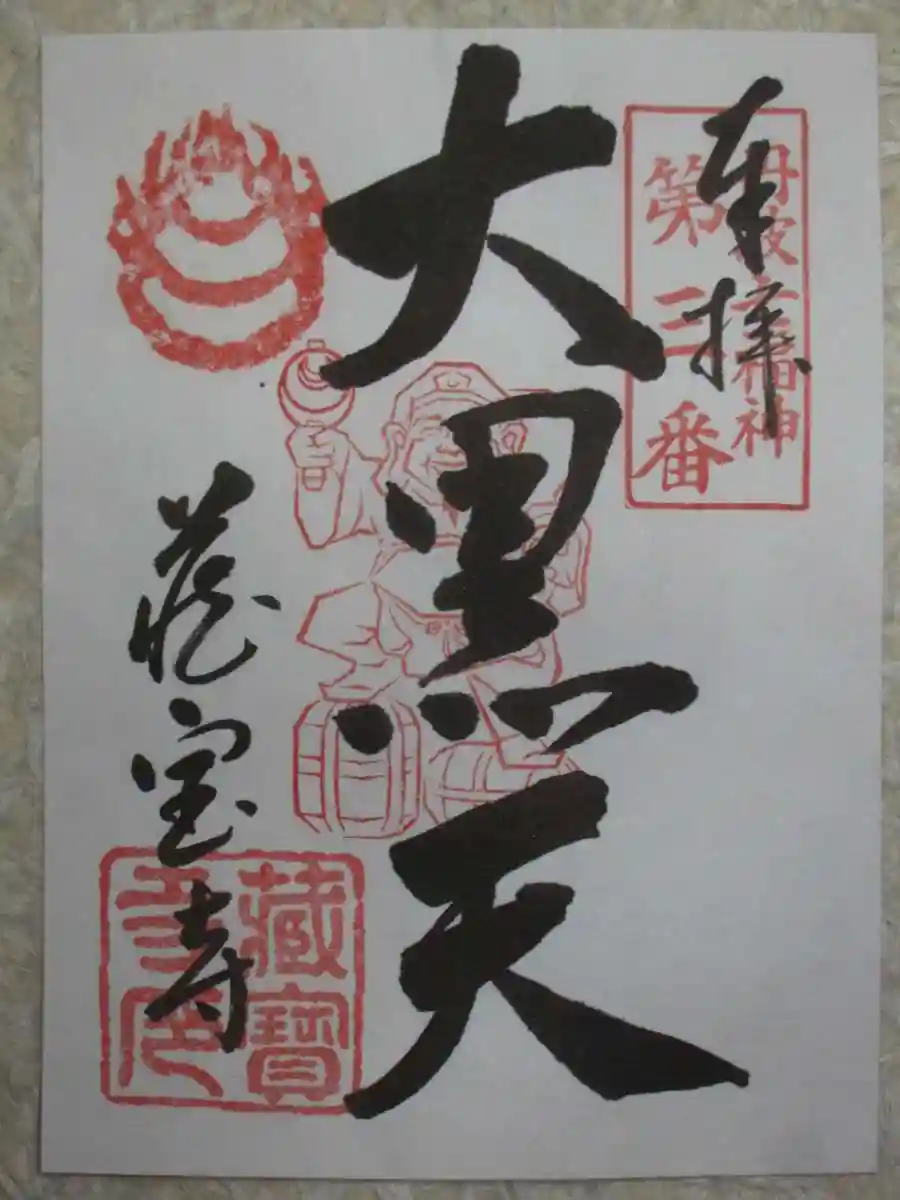 奉拝
丹波七福神
第三番
大黒天
蔵宝寺
藏寶
寺印